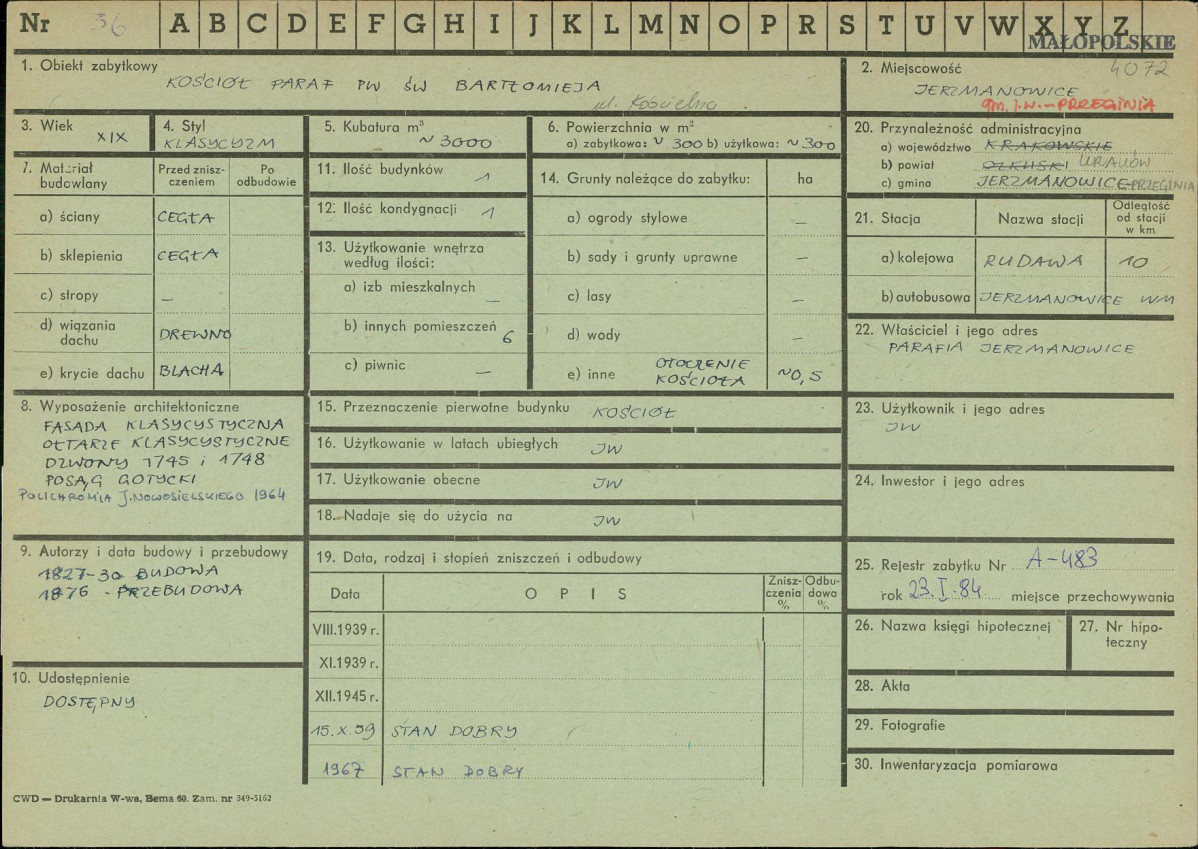 Nr 36 A B C D E F G H I J K L M N O P R S T U V W X Y Z
MAŁOPOLSKIE
4072
1. Obiekt zabytkowy
KOŚCIÓŁ PARAF PW ŚW BARTŁOMIEJA
ul. Kościelna
2. Miejscowość
JERZMANOWICE
gm. j.w. – PRZEGINIA
3. Wiek
XIX
4. Styl
KLASYCYZM
5. Kubatura m³
~ 3000
6. Powierzchnia w m²
a) zabytkowa: ~ 300 b) użytkowa: ~ 300
20. Przynależność administracyjna
a) województwo KRAKOWSKIE
b) powiat OLKUSKI KRAKÓW
c) gmina JERZMANOWICE-PRZEGINIA
7. Materiał budowlany
Przed zniszczeniem
Po odbudowie
a) ściany CEGŁA
b) sklepienia CEGŁA
c) stropy —
d) wiązania dachu DREWNO
e) krycie dachu BLACHA
11. Ilość budynków 1
12. Ilość kondygnacji 1
13. Użytkowanie wnętrza
według ilości:
a) izb mieszkalnych —
b) innych pomieszczeń 6
c) piwnic —
14. Grunty należące do zabytku: ha
a) ogrody stylowe —
b) sady i grunty uprawne —
c) lasy —
d) wody —
e) inne OTOCZENIE KOŚCIOŁA ~0,5
21. Stacja Nazwa stacji Odległość od stacji w km
a) kolejowa RUDAWA 10
b) autobusowa JERZMANOWICE WM
22. Właściciel i jego adres
PARAFIA JERZMANOWICE
8. Wyposażenie architektoniczne
FASADA KLASYCYSTYCZNA
OŁTARZE KLASYCYSTYCZNE
DZWONY 1745 i 1748
POSĄG GOTYCKI
POLICHROMIA J. NOWOSIELSKIEGO 1964
15. Przeznaczenie pierwotne budynku KOŚCIÓŁ
16. Użytkowanie w latach ubiegłych JW
17. Użytkowanie obecne JW
18. Nadaje się do użycia na JW
23. Użytkownik i jego adres
JW
24. Inwestor i jego adres
9. Autorzy i data budowy i przebudowy
1827-30 BUDOWA
1876 - PRZEBUDOWA
10. Udostępnienie
DOSTĘPNY
19. Data, rodzaj i stopień zniszczeń i odbudowy
Data OPIS Zniszczenia % Odbudowa %
VIII.1939 r.
XI.1939 r.
XII.1945 r.
15.X.59 STAN DOBRY
1967 STAN DOBRY
25. Rejestr zabytku Nr A-483
rok 23.I.84 miejsce przechowywania
26. Nazwa księgi hipotecznej
27. Nr hipoteczny
28. Akta
29. Fotografie
30. Inwentaryzacja pomiarowa
CWD — Drukarnia W-wa, Bema 60. Zam. nr 349-5162